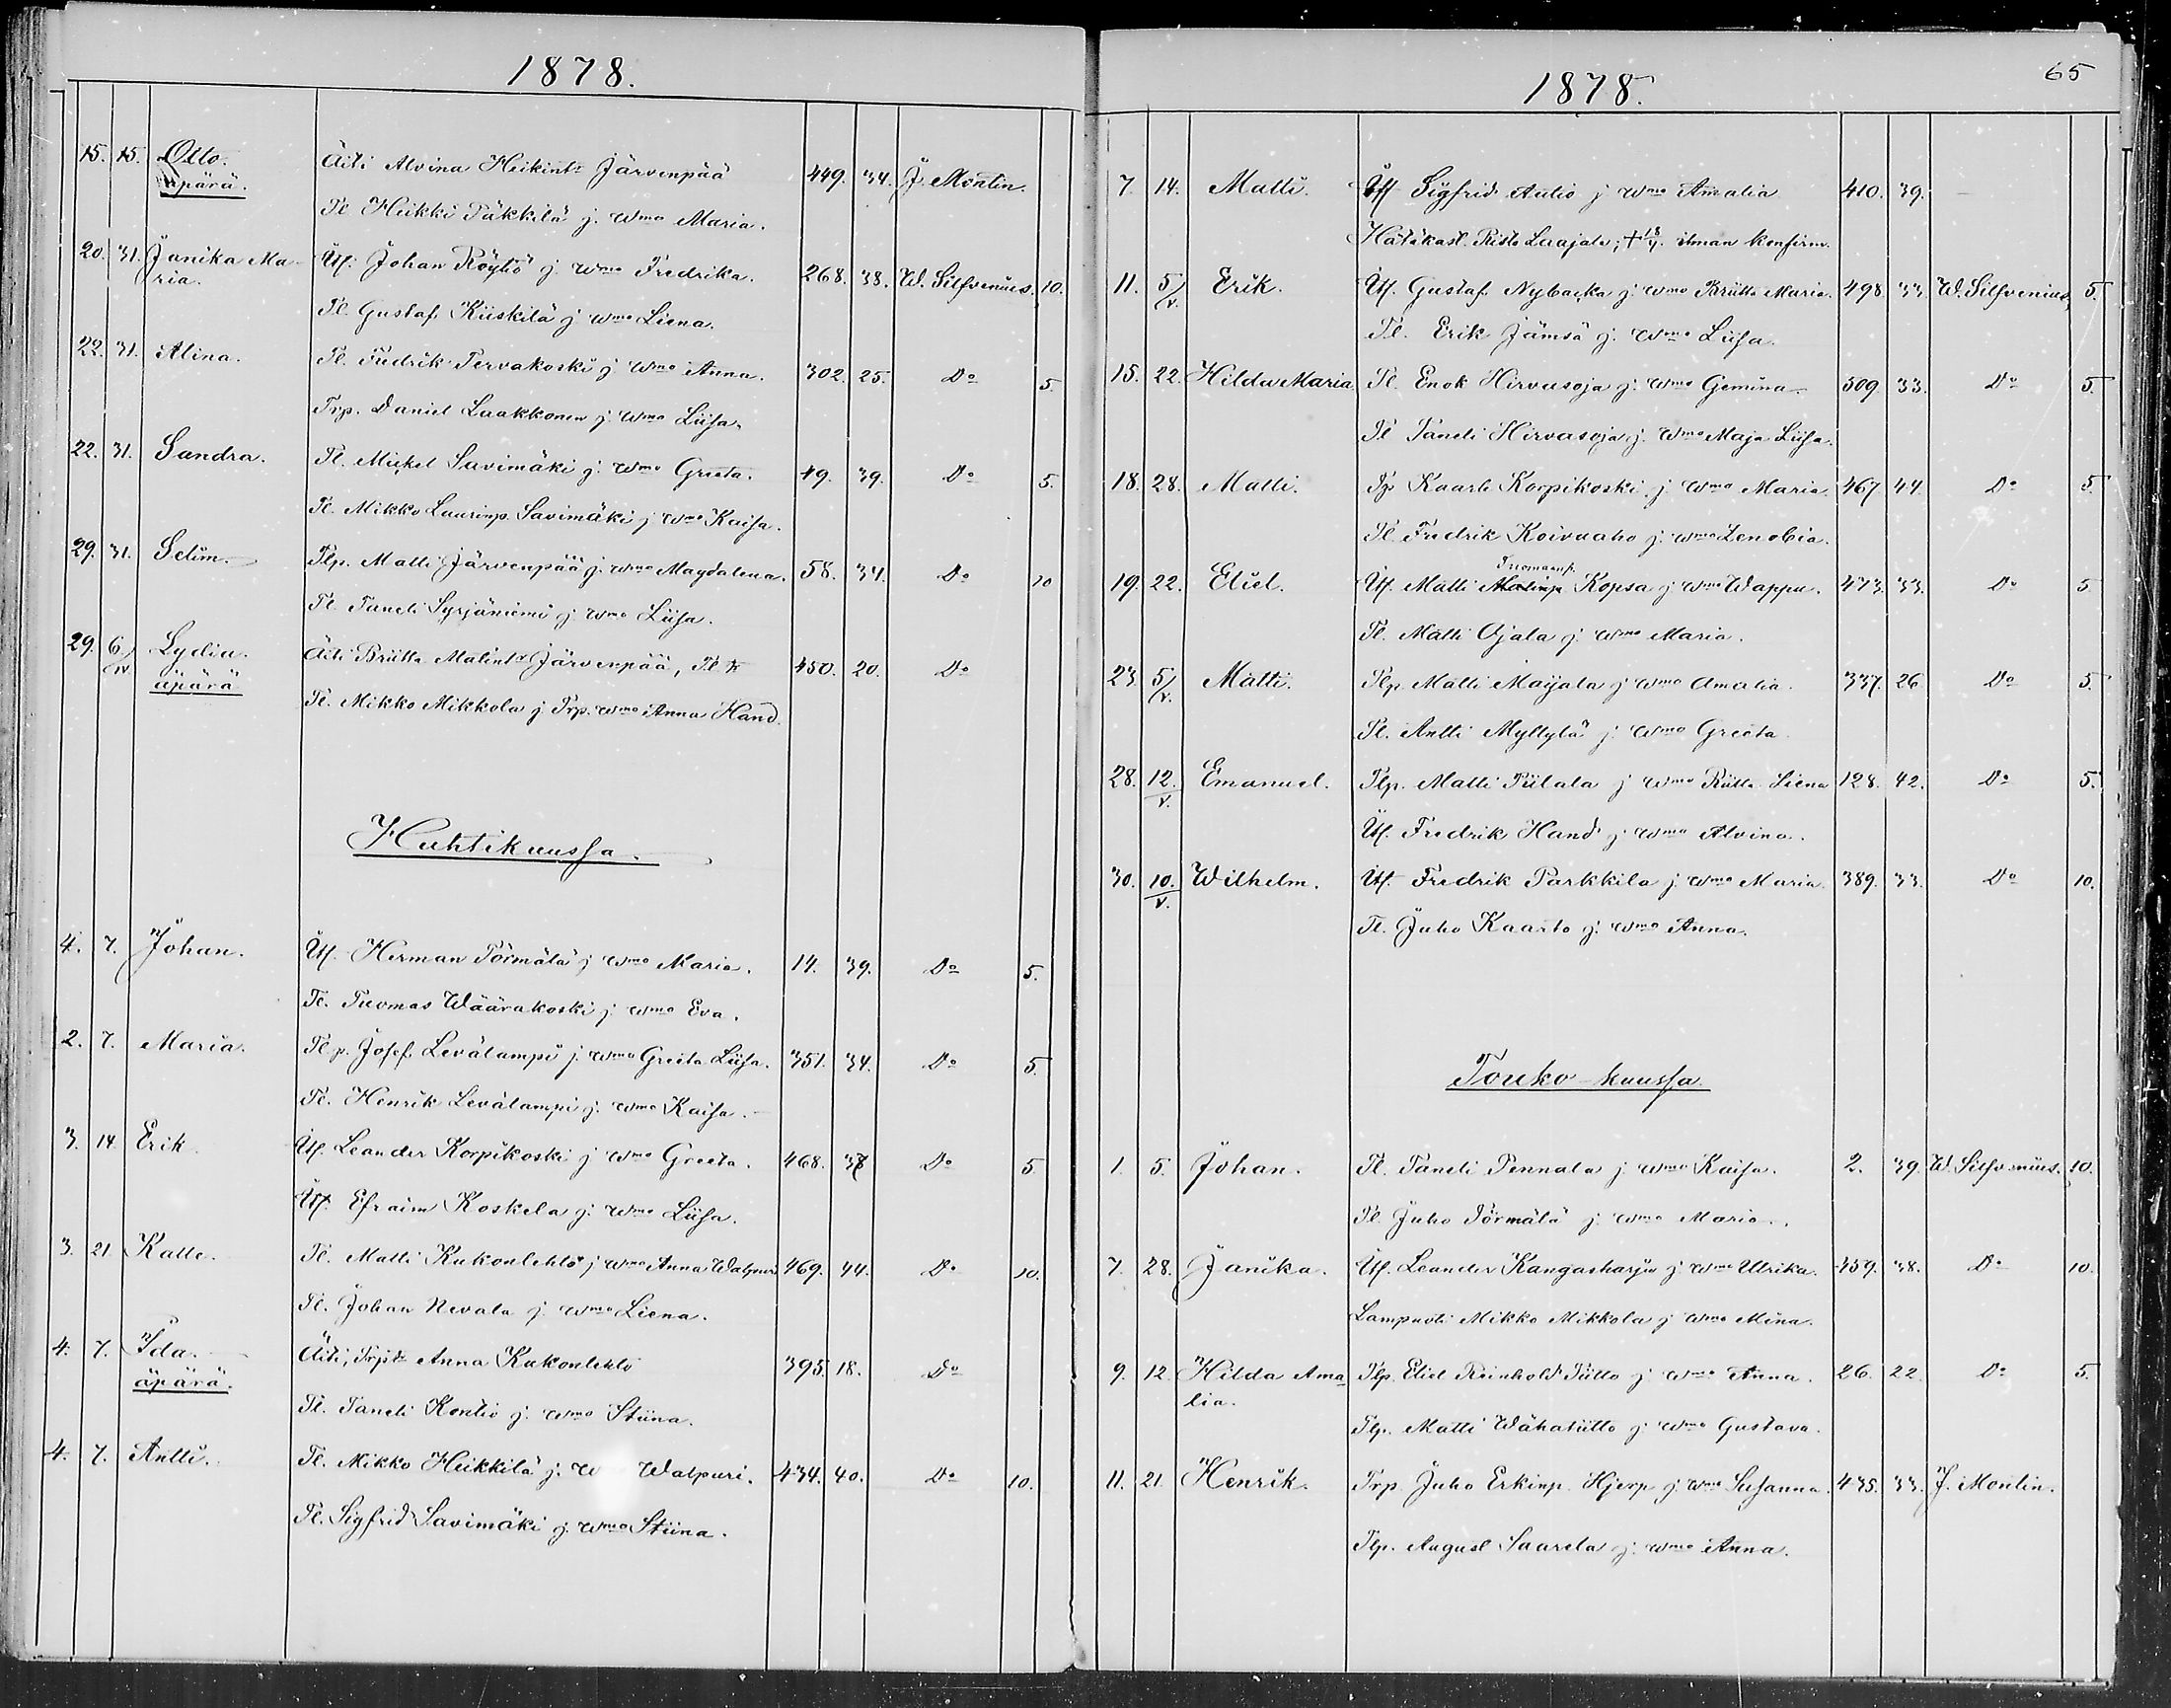 1878.
15. 15. Otto. Äiti Alvina Heikintr Järvenpää 449. 34. J. Montin.
äpärä. Tl. Heikki Päkkilä j. wmo Maria.
20. 31. Janika Ma- Uts. Johan Röyhö j. wmo Fredrika. 268. 38. W. Silfvenius. 10.
ria. Tl. Gustaf Kiiskilä j. wmo Liena.
22. 31. Alina. Tl. Fredrik Tervakoski j. wmo Anna. 302. 25. Do 5
Trp. Daniel Laakkonen j. wmo Liisa.
22. 31. Sandra. Tl. Mickel Savimäki j. wmo Greeta. 49. 39. Do 5.
Tl. Mikko Laurinp. Savimäki j. wmo Kaisa.
29. 31. Selim. Tlp. Matti Järvenpää j. wmo Magdalena. 58. 34. Do 10
Tl. Taneli Syrjäniemi j. wmo Liisa.
29. 6/IV. Lydia. Äiti Briitta Matintr Järvenpää, Tl. tr 450. 20. Do
äpärä Tl. Mikko Mikkola j. Trp. wmo Anna Hand.
Huhtikuussa.
4. 7. Johan. Uts. Herman Törmälä j wmo Maria. 14. 39. Do 5.
Tl. Tuomas Wäärakoski j. wmo Eva.
2. 7. Maria. Tlp. Josef Levälampi j. wmo Greeta Liisa. 351. 34. Do 5.
Tl. Henrik Levälampi j. wmo Kaisa.
3. 14. Erik. Uts. Leander Korpikoski j wmo Greeta. 468. 37 Do 5
Uts. Efraim Koskela j. wmo Liisa.
3. 21 Kalle. Tl. Matti Kukonlehto j wmo Anna Walpuri 469. 44. Do 10.
Tl. Johan Nevala j. wmo Liena.
4. 7. Ida. Äiti, Trptr Anna Kukonlehto 395. 18. Do
äpärä. Tl. Taneli Kontio j. wmo Stiina.
4. 7. Antti. Tl. Mikko Heikkilä j. W Walpuri. 434. 40. Do 10.
Tl. Sigfrid Savimäki j. wmo Stiina.
1878. 65
7. 14. Matti. Uts Sigfrid Autio j wmo Amalia 410. 39.
Hätäkast. Risto Laajala; + 18/4. ilman konfirm.
11. 5/V. Erik. Uts. Gustaf Nybacka j. wmo Briitta Maria. 498. 33 W. Silfvenius, 5.
Tl. Erik Jämsä j. wmo Liisa.
15. 22. Hilda Maria Tl. Enok Hirvasoja j. wmo Gemina. 509. 33. Do 5.
Tl Taneli Hirvasoja j. wmo Maja Liisa.
18. 28. Matti. Tp Kaarle Korpikoski j. wmo Maria. 467. 44. Do 5.
Tl. Fredrik Koivuaho j. wmo Zenobia.
Tuomaanp.
19. 22. Eliel. Uts. Matti Matinp. Kopsa j wmo Wappu. 473. 33. Do 5.
Tl. Matti Ojala j. wmo Maria.
23. 5/V. Matti. Tlp. Matti Maijala j wmo Amalia. 337. 26 Do 5.
Tl. Antti Myllylä j. wmo Greeta.
28. 12./V. Emanuel. Tlp. Matti Piilala j wmo Riitta Liena 128. 42. Do 5.
Uts. Fredrik Hand j. wmo Alvina.
30. 10./V. Wilhelm. Uts. Fredrik Parkkila j. wmo Maria 389. 33. Do 10.
Tl. Juho Kaarto j. wmo Anna.
Touko-kuussa.
1. 5. Johan. Tl. Taneli Pennala j. wmo Kaisa. 2. 39. W. Silfvenius. 10.
Tl. Juho Törmälä j. wmo Maria.
7. 28. Janika. Uts. Leander Kangasharju j. wmo Ulrika. 359. 38. Do 10.
Lampuoti Mikko Mikkola j wmo Mina.
9. 12. Hilda Ama- Tlp. Eliel Reinhold Tiitto j wmo Anna. 26. 22. Do 5.
lia.
Tlp. Matti Wähätiitto j. wmo Gustava.
11. 21. Henrik. Trp. Juho Erkinp. Hjerp j. wmo Susanna. 435. 33. J. Montin.
Tlp. August Saarela j. wmo Anna.